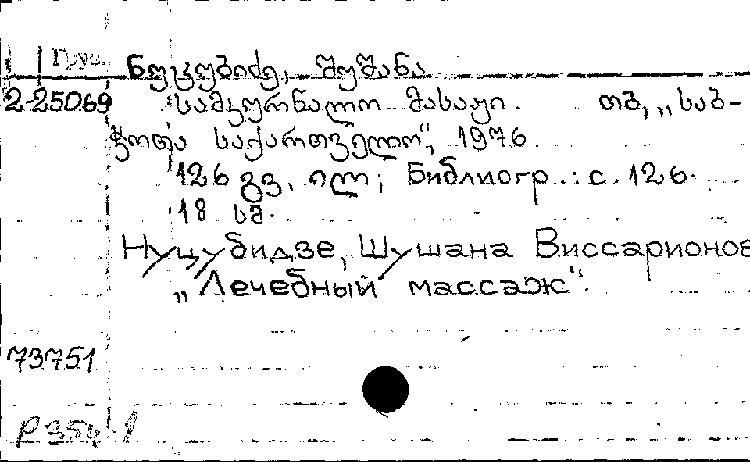 Груз.
ნუცუბიძე, შუშანა
2-25069 სამკურნალო მასაჟი. თბ, „საბ-
ჭოთა საქართველო“, 1976
126 გვ. ილ; Библиогр.: с. 126.
18 სმ.
Нуцубидзе, Шушана Виссарионов
„Лечебный массаж“.
73751